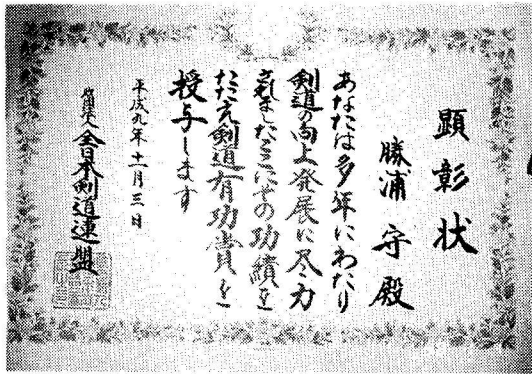 顕彰状
勝浦守殿
あなたは多年にわたり
剣道の向上発展に尽力
されましたここにその功績を
たたえ剣道有功賞を
授与します
平成九年十一月三日
財団法人全日本剣道連盟